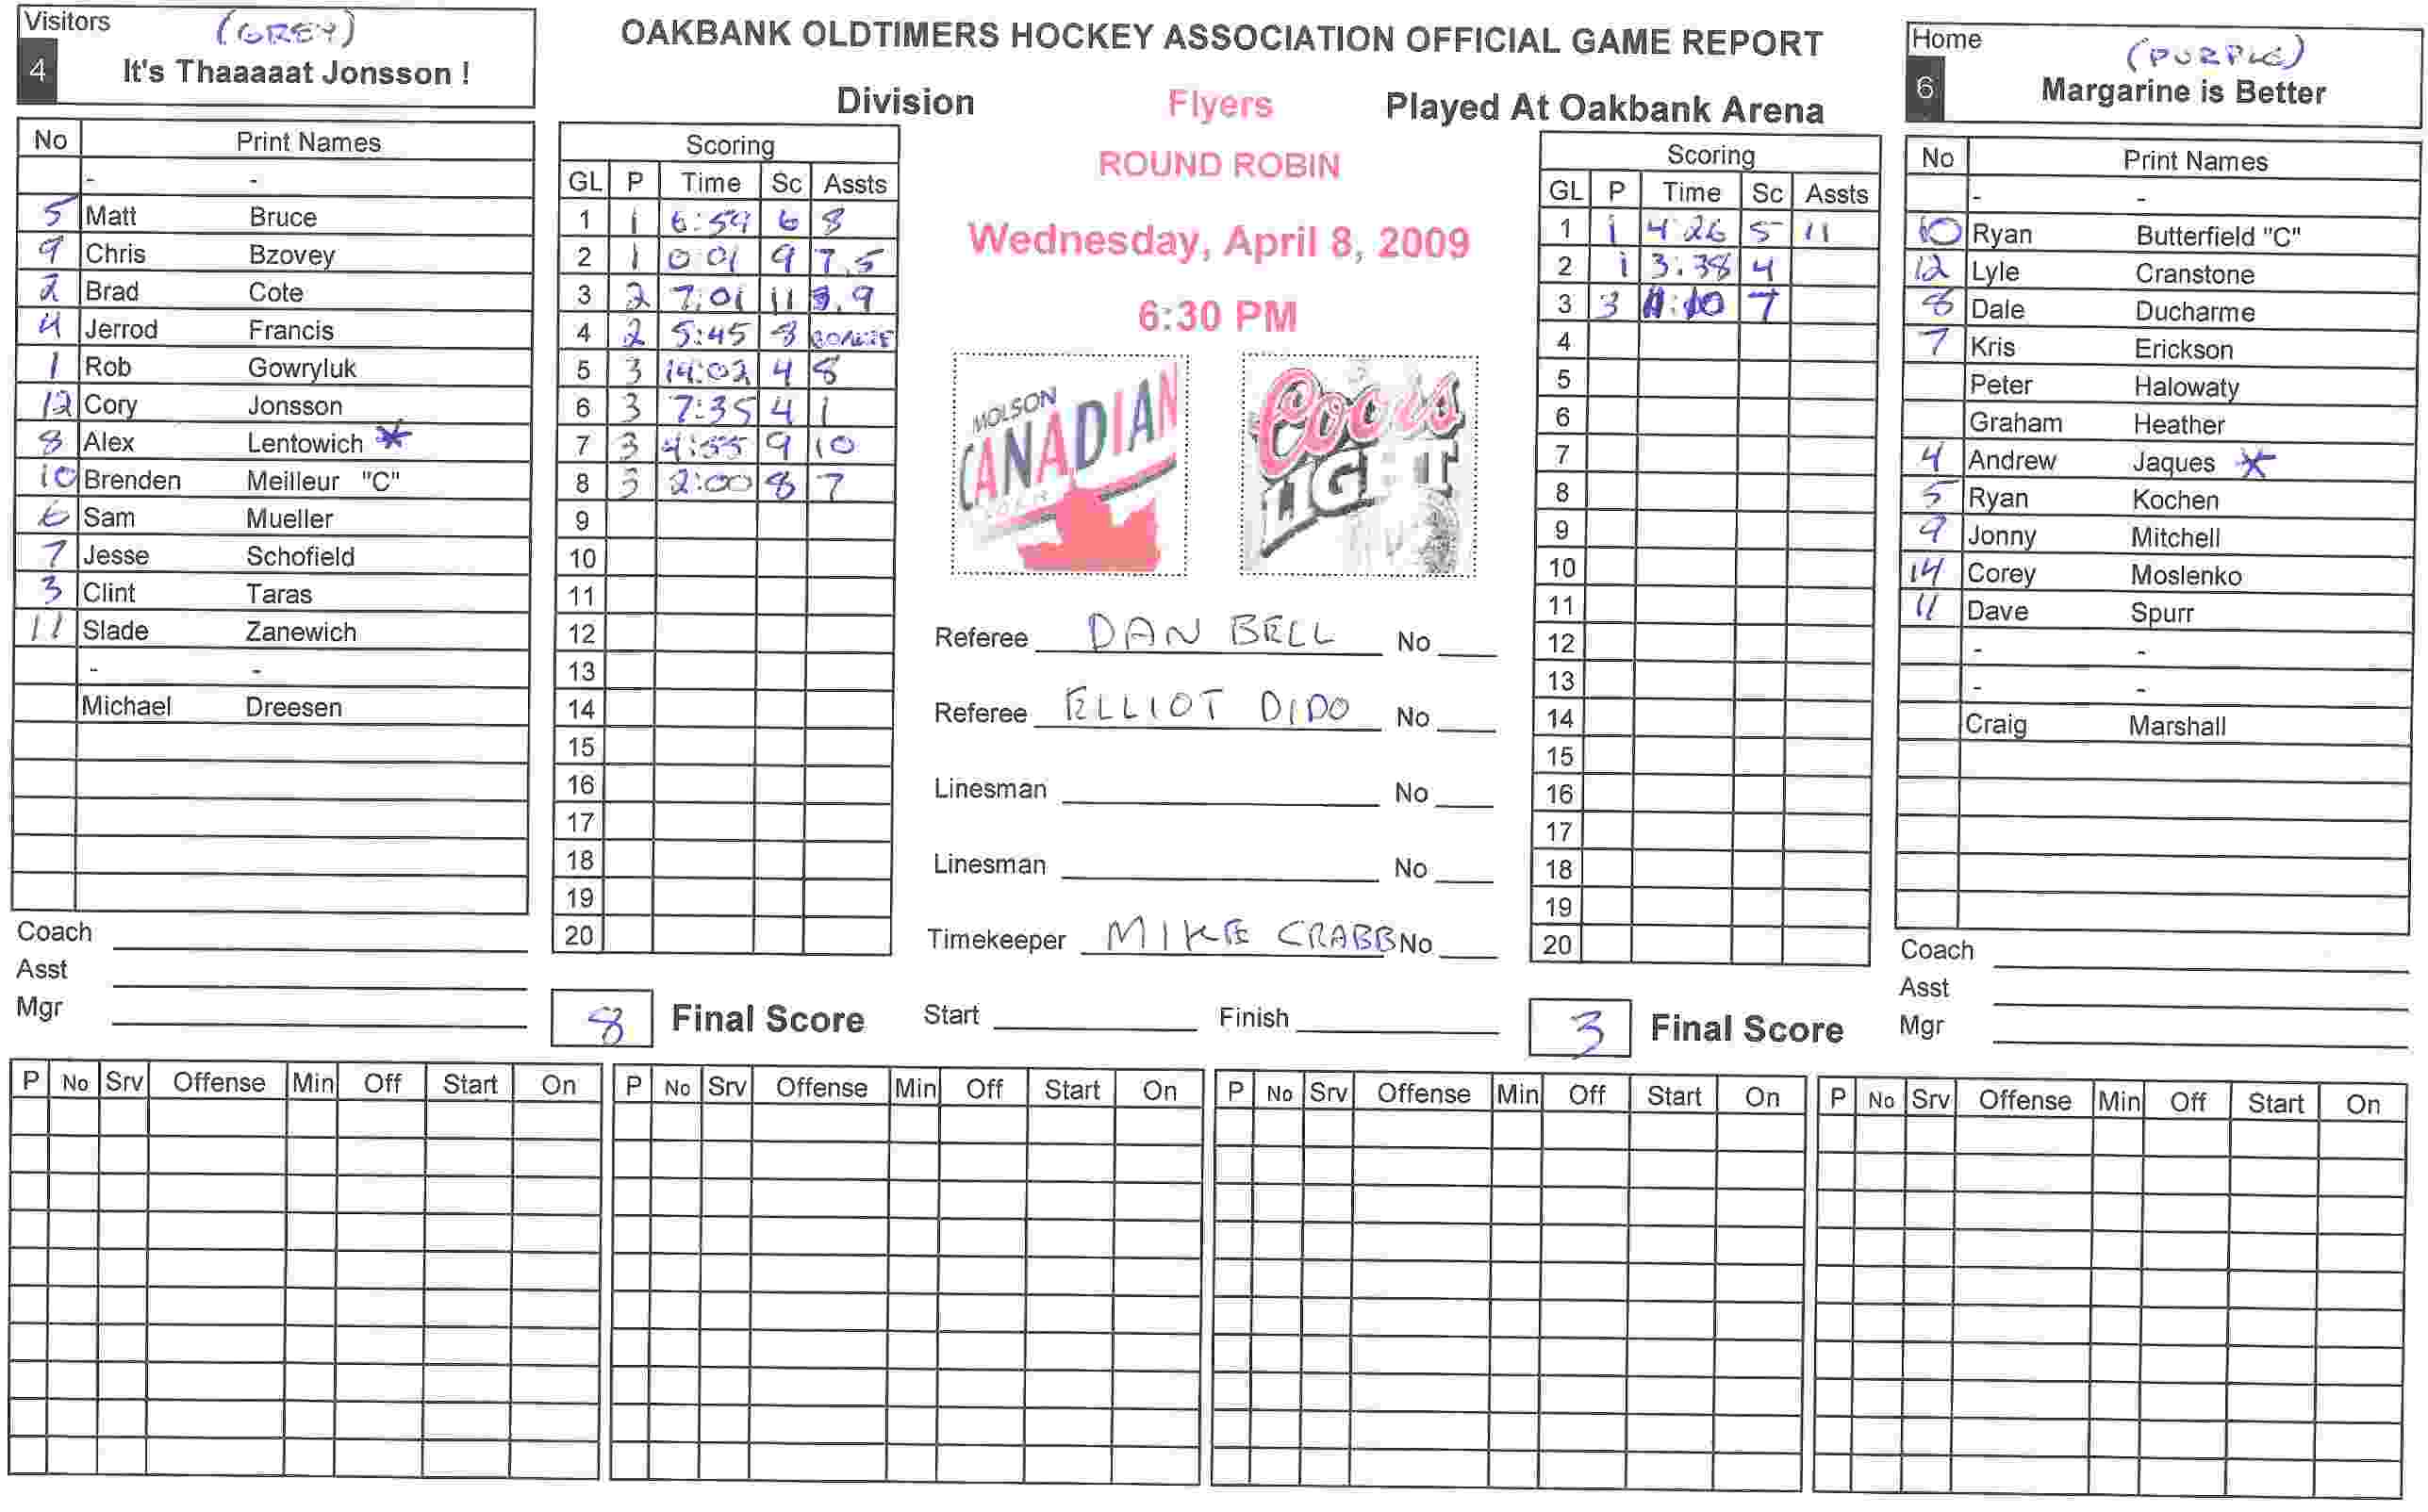 OAKBANK OLDTIMERS HOCKEY ASSOCIATION OFFICIAL GAME REPORT
Visitors (GREY)
4 It's Thaaaaat Jonsson !
Home (PURPLE)
6 Margarine is Better
Division Flyers Played At Oakbank Arena
ROUND ROBIN
Wednesday, April 8, 2009
6:30 PM
No Print Names
- -
5 Matt Bruce
9 Chris Bzovey
2 Brad Cote
4 Jerrod Francis
1 Rob Gowryluk
12 Cory Jonsson
8 Alex Lentowich *
10 Brenden Meilleur "C"
6 Sam Mueller
7 Jesse Schofield
3 Clint Taras
11 Slade Zanewich
- -
Michael Dreesen
Coach
Asst
Mgr
Scoring
GL P Time Sc Assts
1 1 6:59 6 8
2 1 0:01 9 7,5
3 2 7:01 11 3,9
4 2 5:45 8
5 3 14:02 4 8
6 3 7:35 4 1
7 3 4:55 9 10
8 3 2:00 8 7
9
10
11
12
13
14
15
16
17
18
19
20
8 Final Score
MOLSON
CANADIAN
Coors
LIGHT
Referee DAN BELL No
Referee ELLIOT DIDO No
Linesman No
Linesman No
Timekeeper MIKE CRABB No
Start Finish
Scoring
GL P Time Sc Assts
1 1 4:26 5 11
2 1 3:38 4
3 3 7
4
5
6
7
8
9
10
11
12
13
14
15
16
17
18
19
20
3 Final Score
No Print Names
- -
10 Ryan Butterfield "C"
12 Lyle Cranstone
8 Dale Ducharme
7 Kris Erickson
Peter Halowaty
Graham Heather
4 Andrew Jaques *
5 Ryan Kochen
9 Jonny Mitchell
14 Corey Moslenko
11 Dave Spurr
- -
- -
Craig Marshall
Coach
Asst
Mgr
P No Srv Offense Min Off Start On P No Srv Offense Min Off Start On P No Srv Offense Min Off Start On P No Srv Offense Min Off Start On